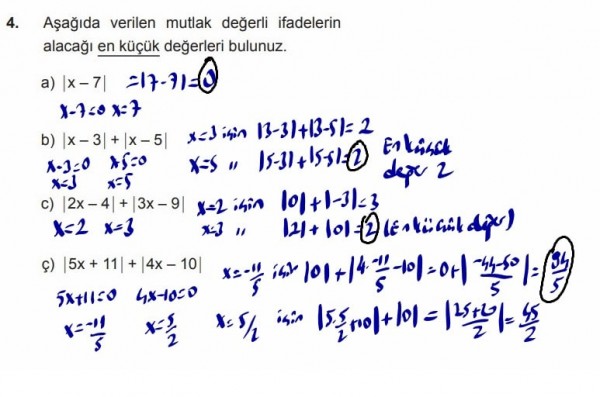 4. Aşağıda verilen mutlak değerli ifadelerin
alacağı en küçük değerleri bulunuz.
a) |x – 7| =|7-7|=0
x-7=0 x=7
b) |x – 3| + |x – 5| x=3 için |3-3|+|3-5|= 2
x-3=0 x-5=0 x=5 " |5-3|+|5-5|=2 En küçük
x=3 x=5 değer 2
c) |2x – 4| + |3x – 9| x=2 için |0|+|-3|=3
x=2 x=3 x=3 " |2|+|0|=2 (En küçük değer)
ç) |5x + 11| + |4x – 10| x=-11/5 için |0|+|4.-11/5-10|=0+|-44-50/5|=94/5
5x+11=0 4x-10=0
x=-11/5 x=5/2 x=5/2 için |5.5/2+10|+|0|=|25+20/2|=45/2